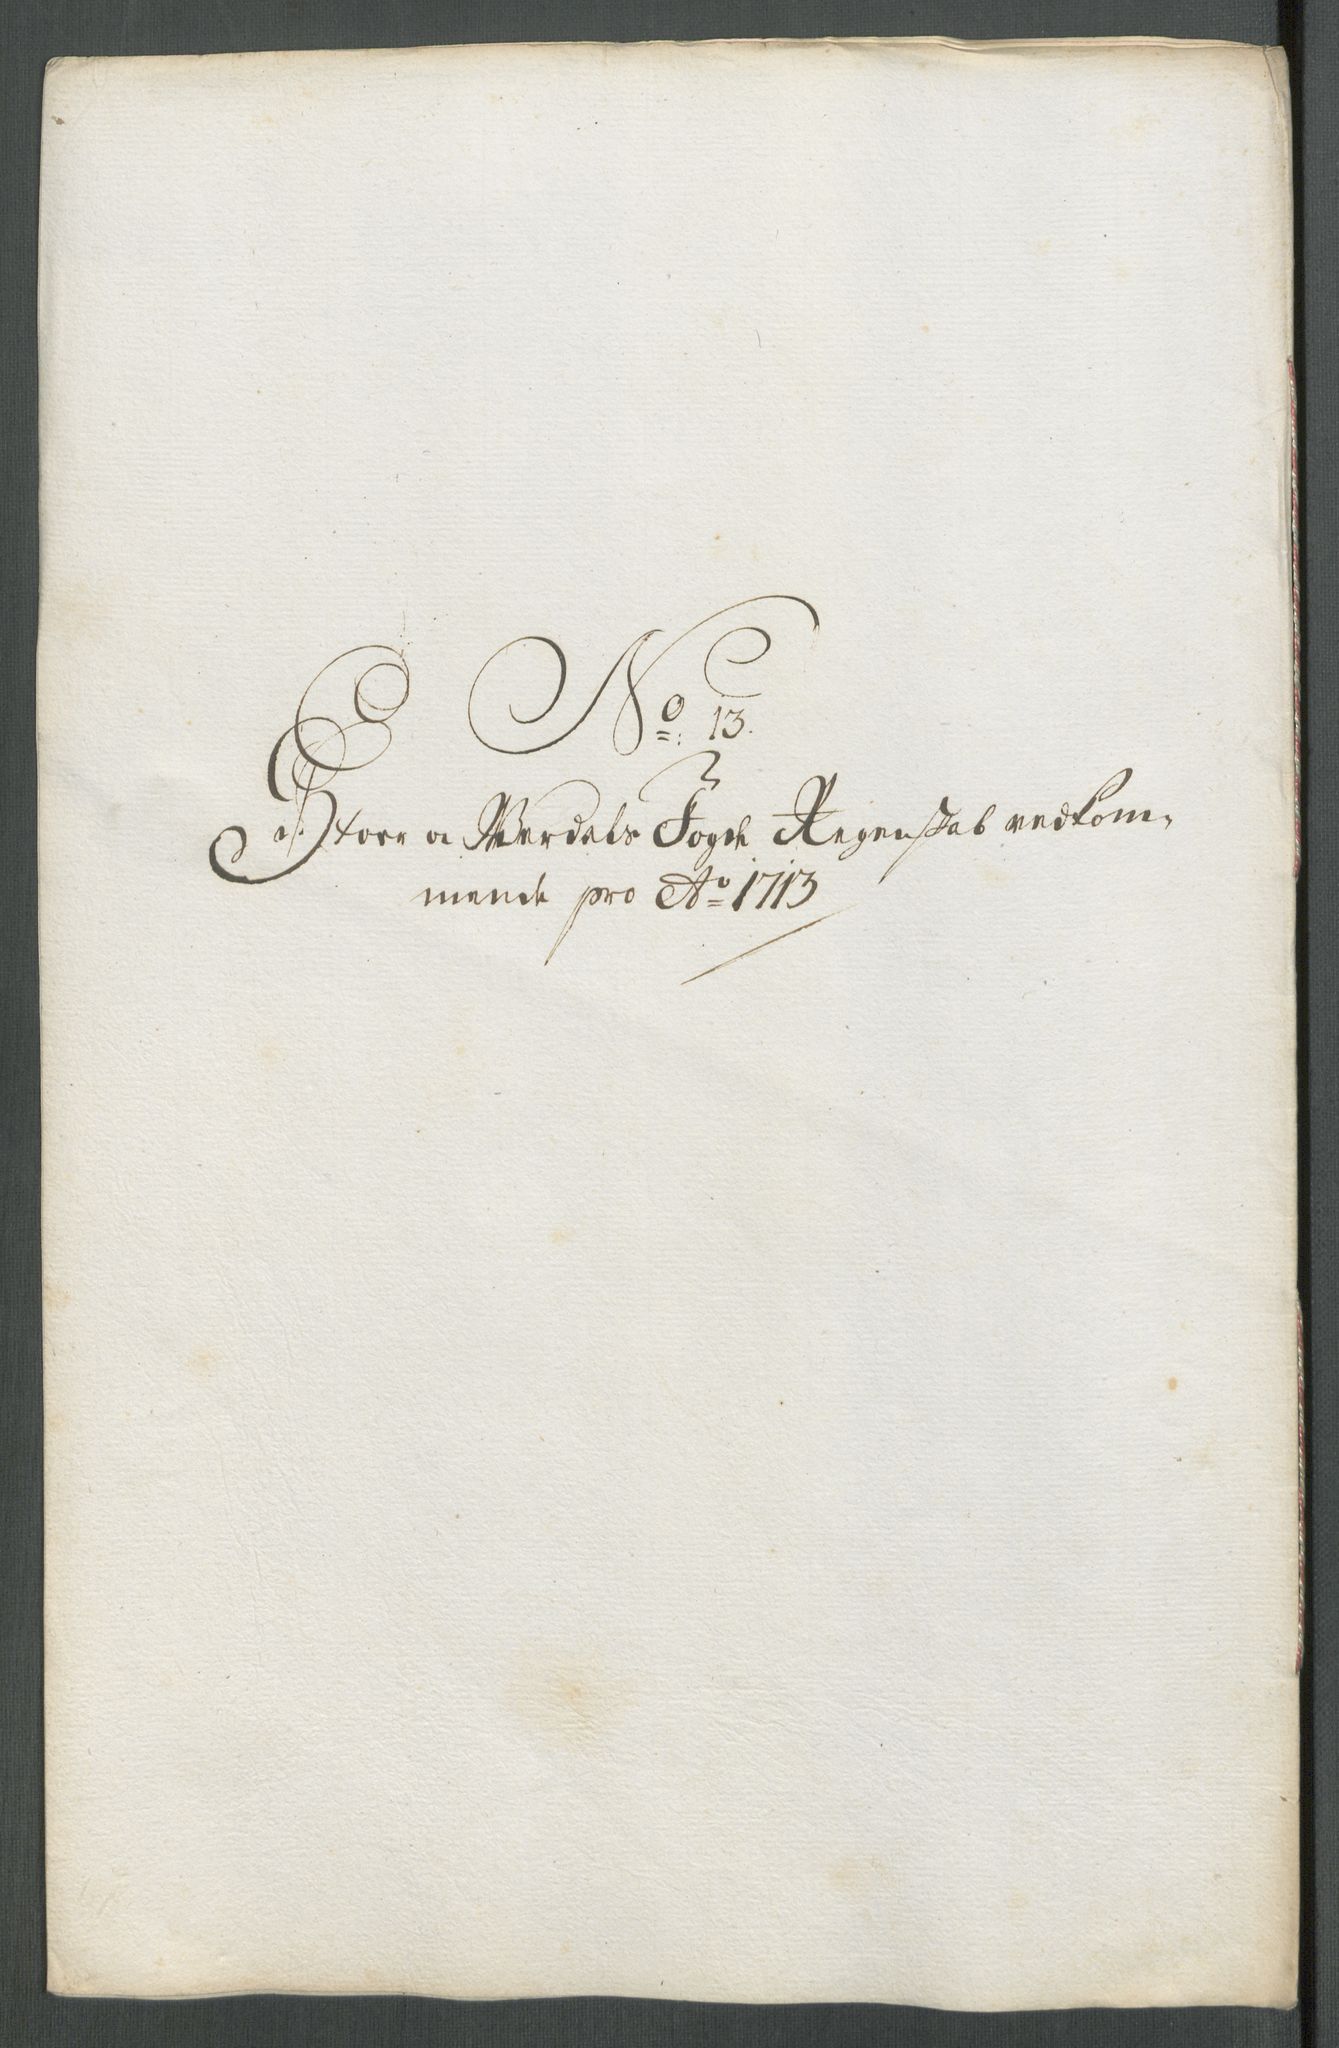 No: 13.
Støer oc Werdals Fogde Regenskab vedkom-
mende pro Ao 1713